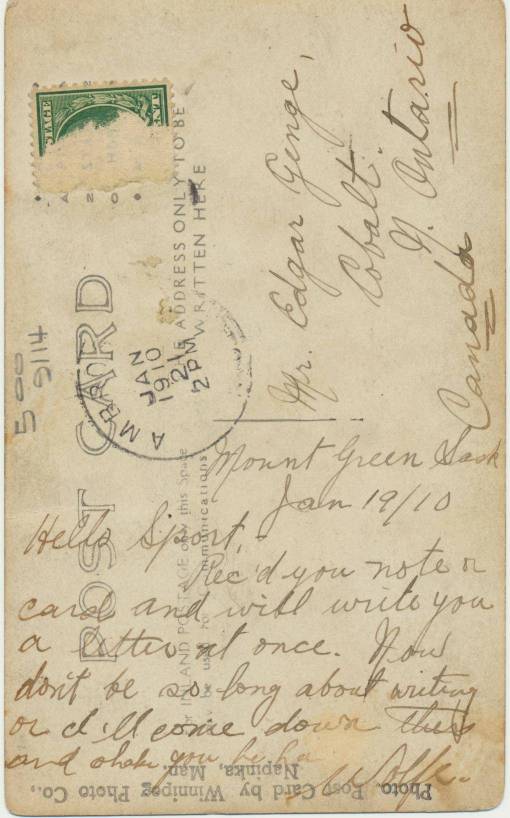 POST CARD
THE ADDRESS ONLY TO BE
WRITTEN HERE
AMBR
JAN
21
1910
2 PM
500
9114
Mr. Edgar Genge,
Cobalt.
N. Ontario
Canada
Mount Green Sask
Jan 19/10
Hello Sport.
Rec'd you note or
card and will write you
a letter at once. Now
don't be so long about writing
or I'll come down there
and shake you ha ha
Wolfe.
Photo. Post Card by Winnipeg Photo Co.,
Napinka, Man.